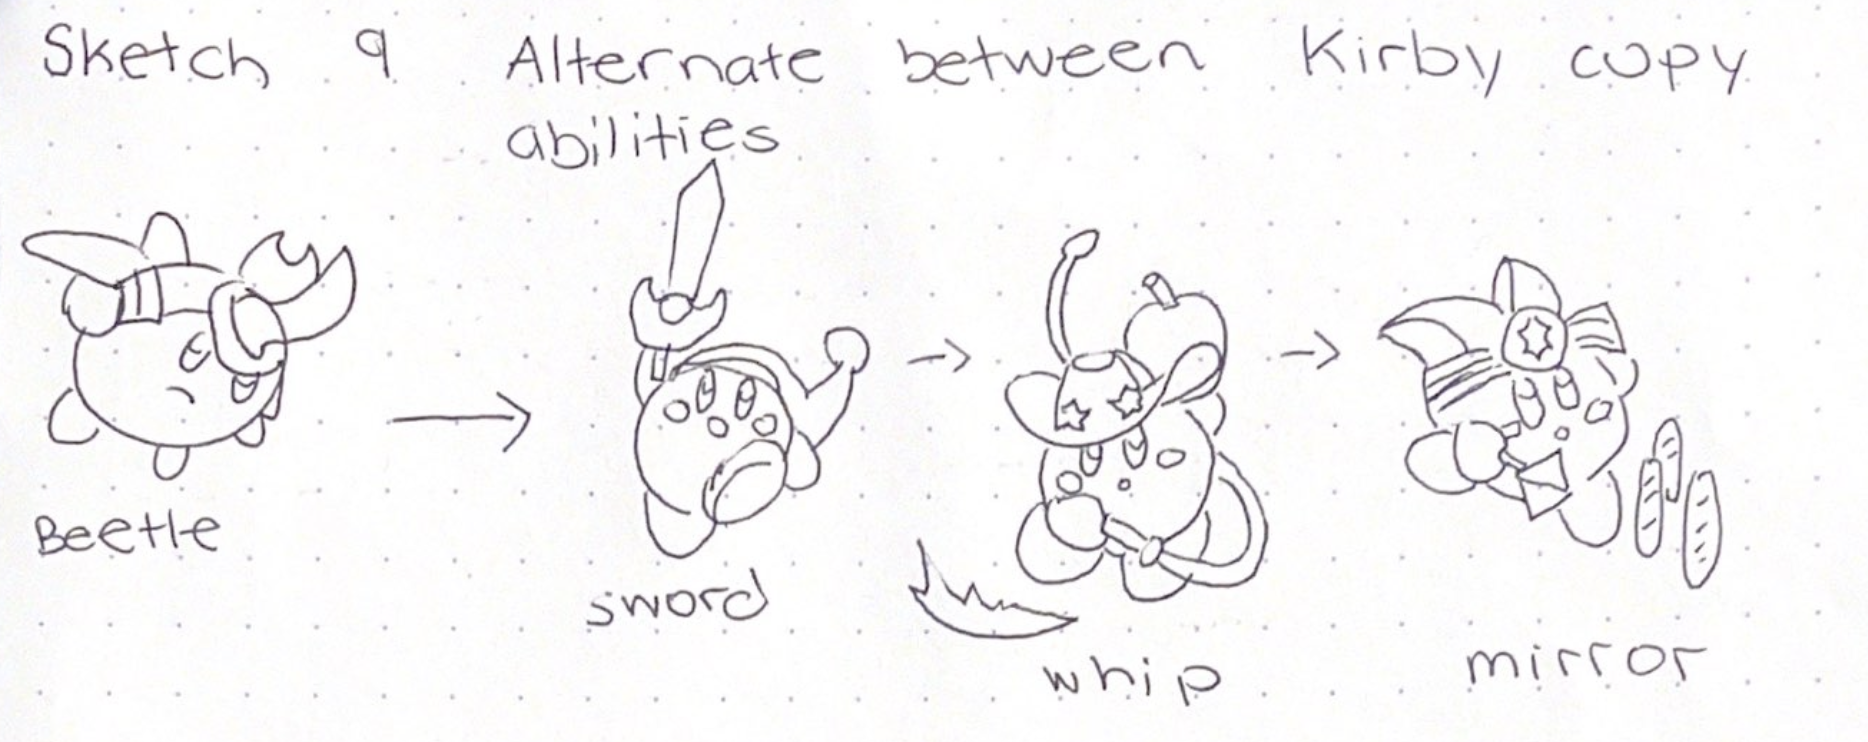 Sketch 9 Alternate between Kirby copy
abilities
Beetle
sword
whip
mirror